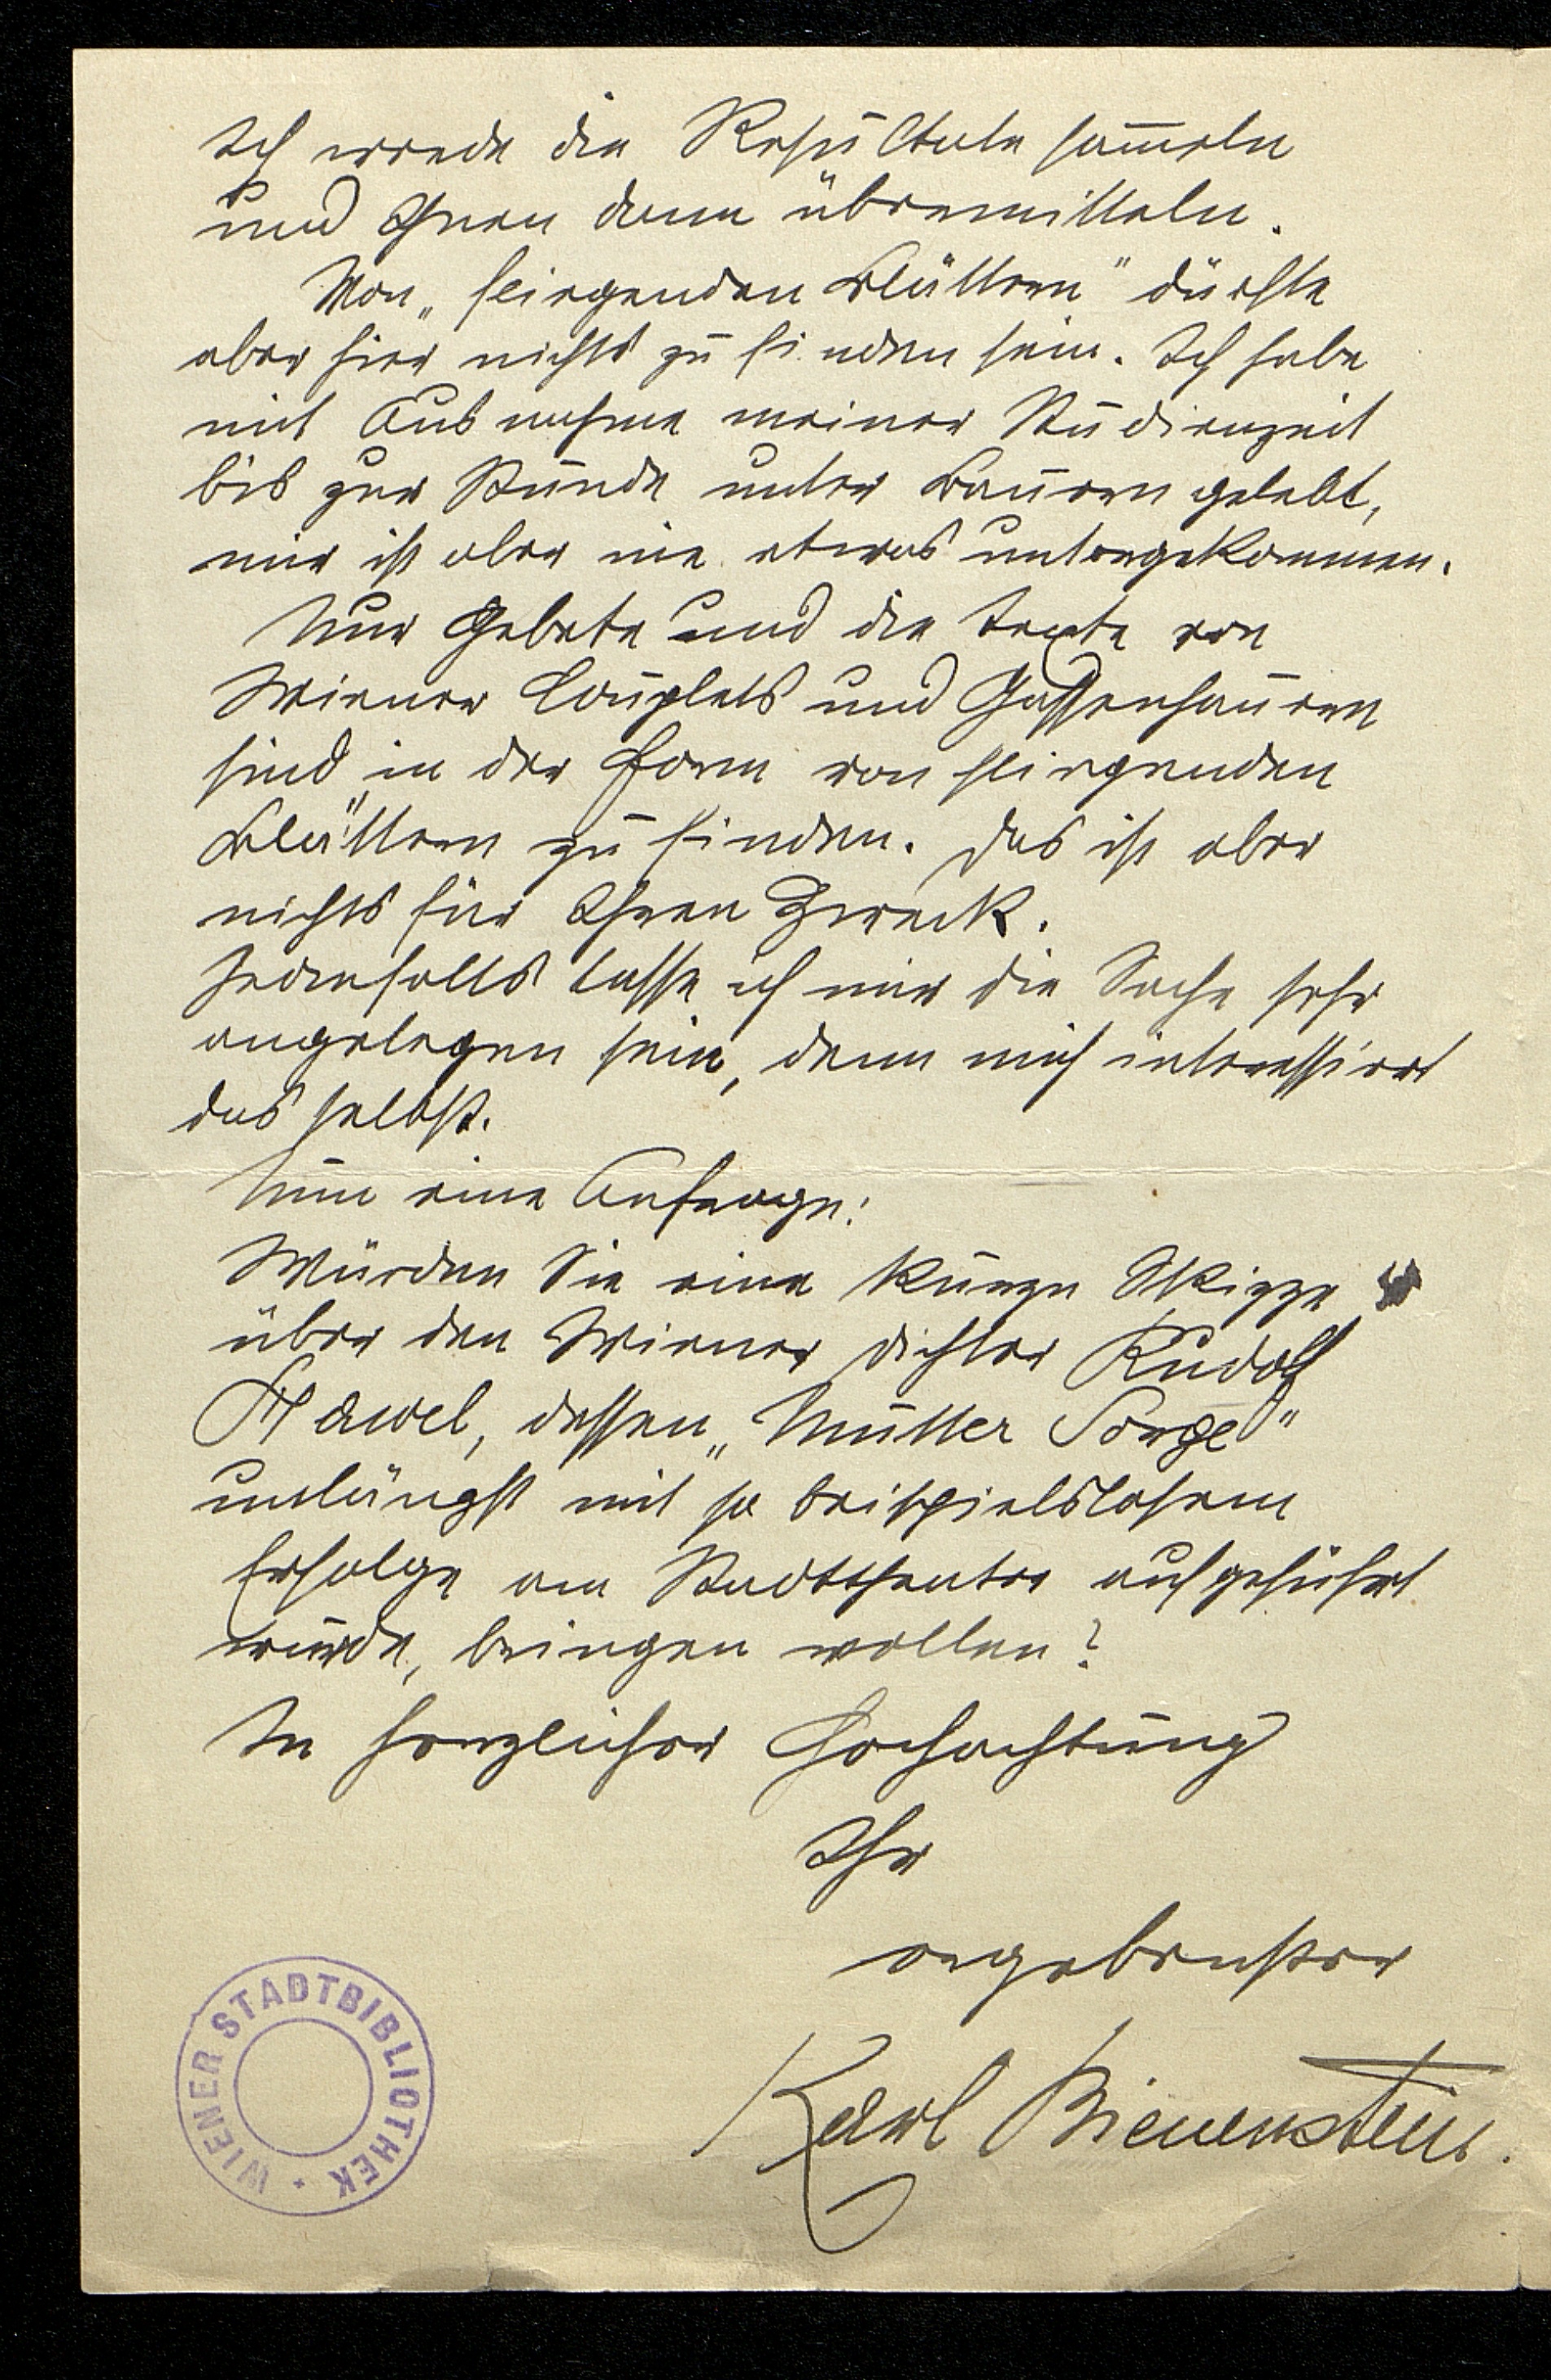 Ich werde die Resultate sam̅eln
und Ihnen dann übermitteln.
Von „fliegenden Blättern" dürfte
aber hier nichts zu finden sein. Ich habe
mit Ausnahme meiner Studienzeit
bis zur Stunde unter Bauern gelebt,
mir ist aber nie etwas untergekommen.
Nur Gebete und die Texte von
Wiener Couplets und Gassenhauern
sind in der Form von fliegenden
Blättern zu finden. Das ist aber
nichts für Ihren Zweck.
Jedenfalls lasse ich mir die Sache sehr
angelegen sein, denn mich interessiert
das selbst.
Nun eine Anfrage:
Würden Sie eine kurze Skizze
über den Wiener Dichter Rudolf
Hawel, dessen „Mutter Sorge"
unlängst mit so beispielslosem
Erfolge am Stadttheater aufgeführt
wurde, bringen wollen?
In herzlicher Hochachtung
Ihr
ergebenster
Karl Bienenstein.
WIENER STADTBIBLIOTHEK *